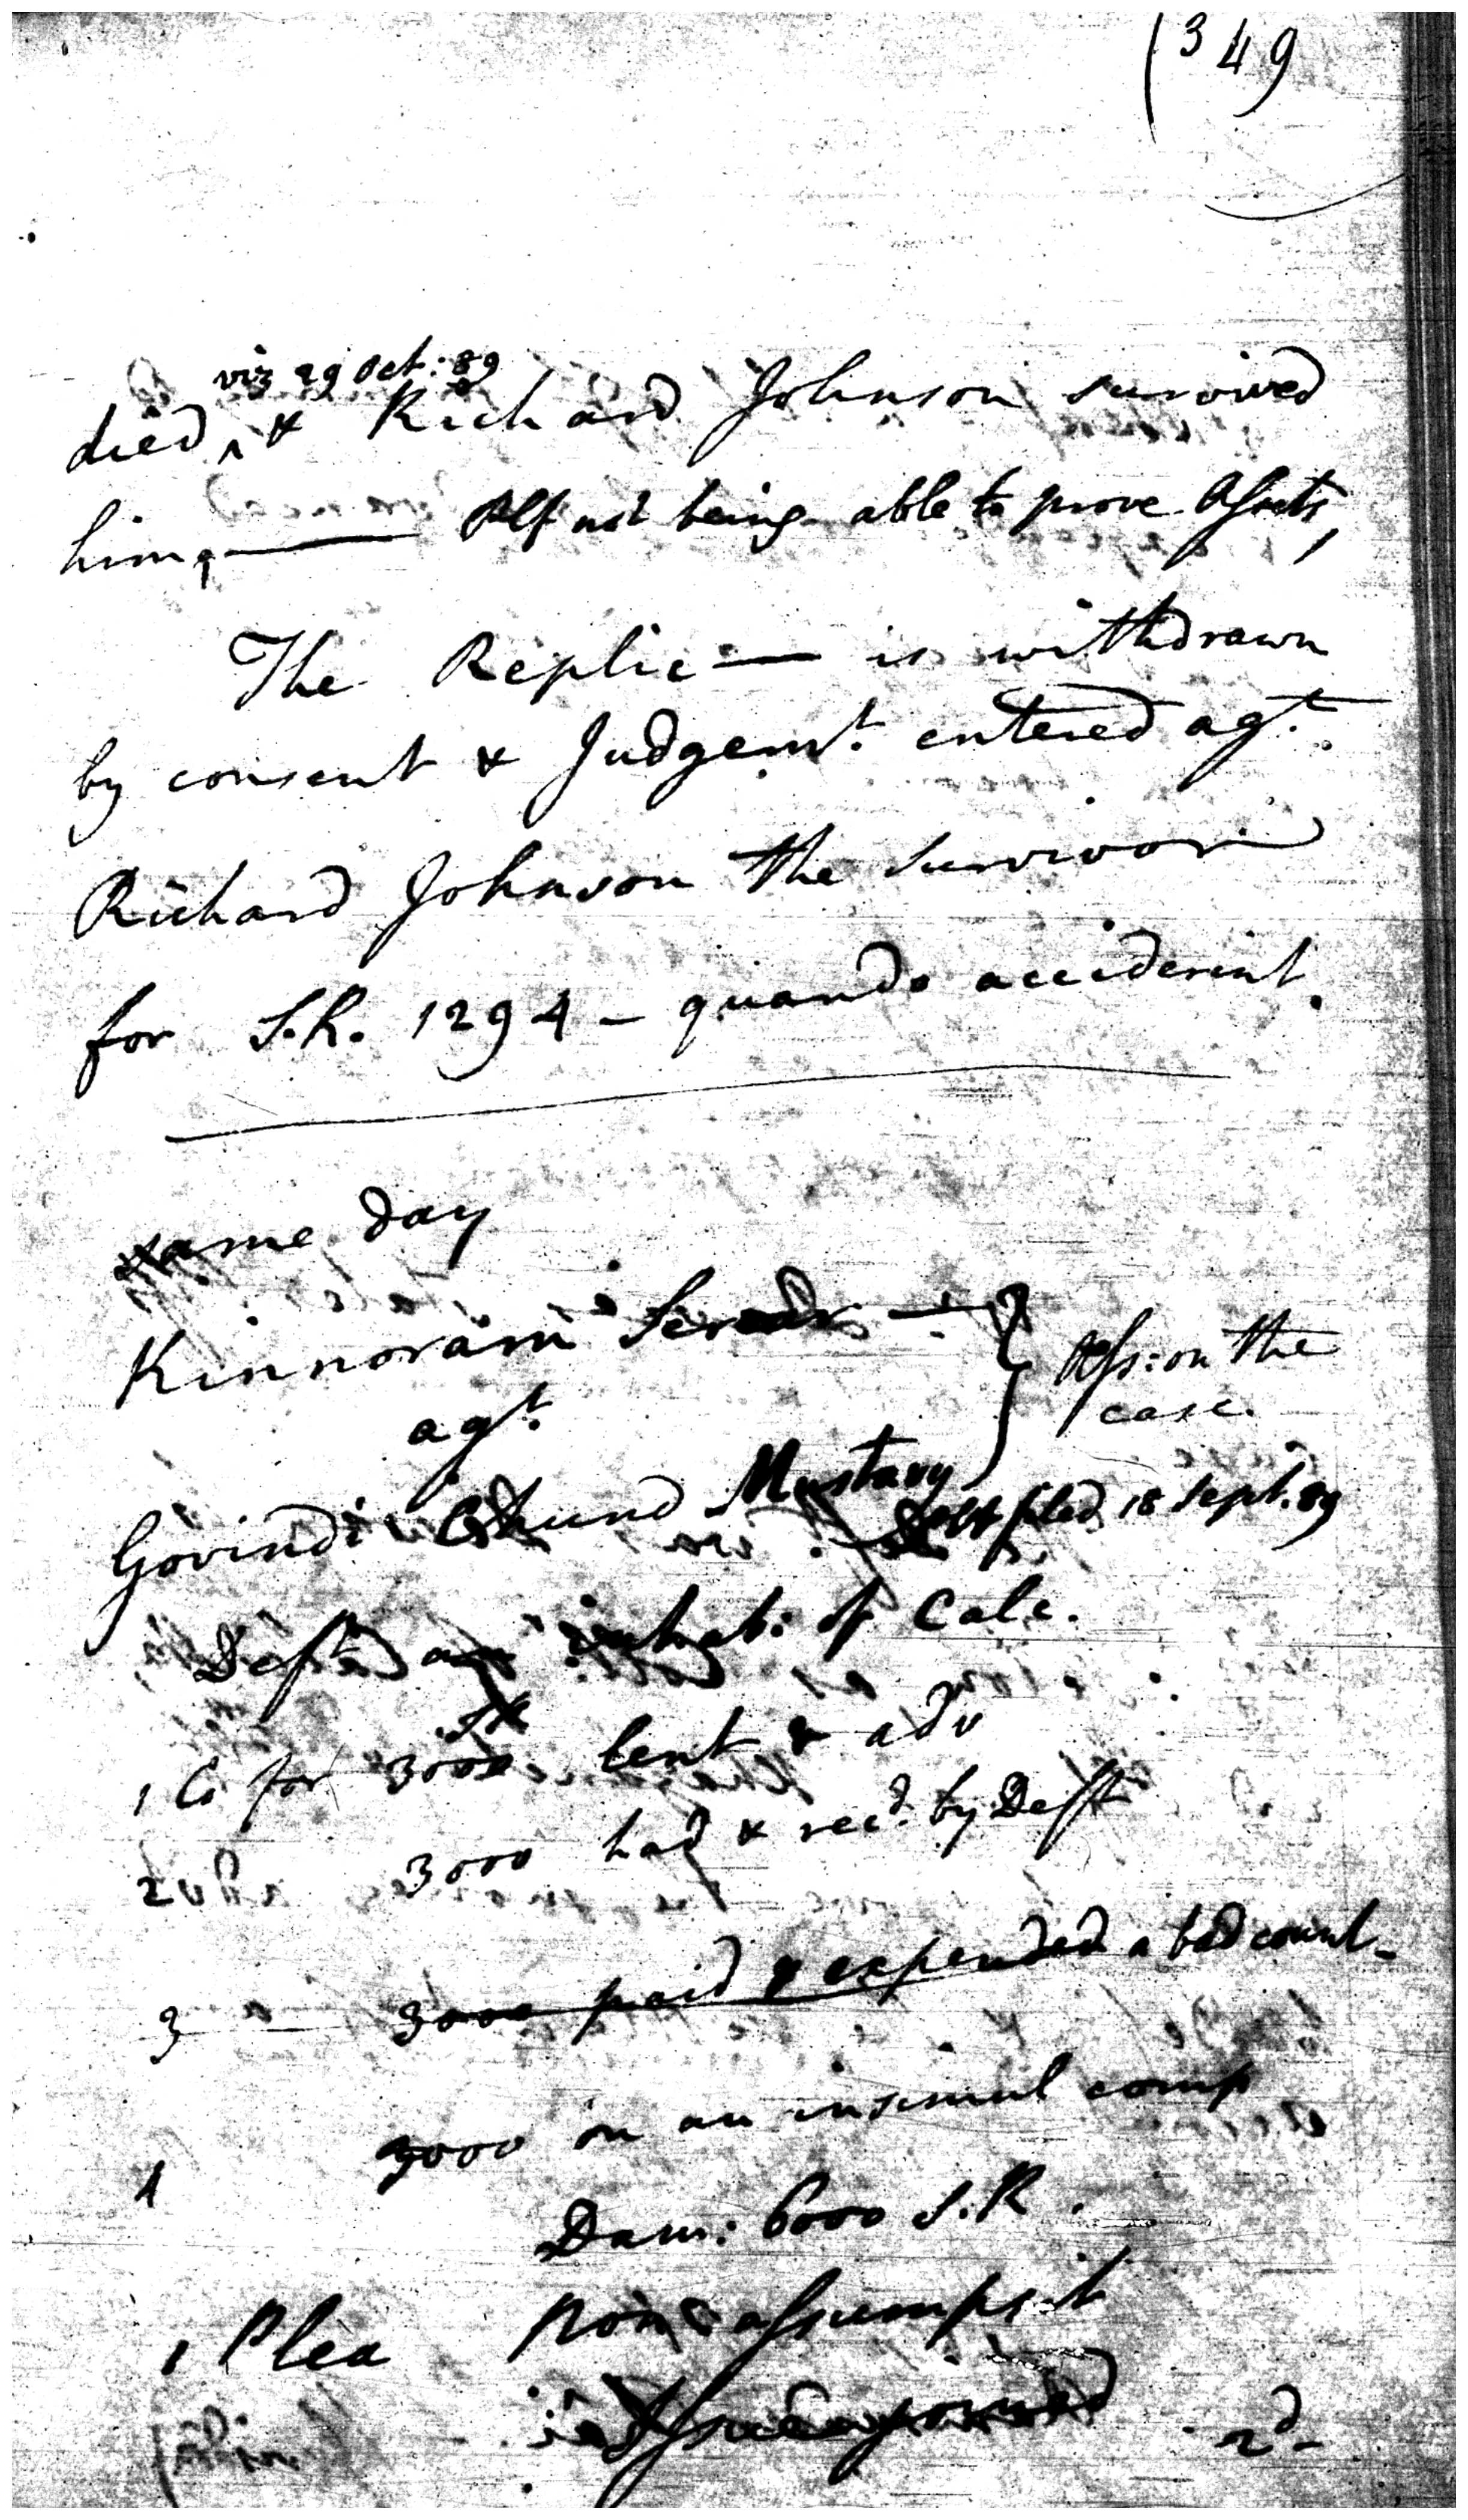 (349
viz 29 Oct: 89
died, & Richard Johnson survived
him, — Plf not being able to prove Assets,
The Replic— is withdrawn
by consent & Judgemt. entered agt.
Richard Johnson the survivor
for S.R. 1294 - quando acciderint.
same day
Kinnoram
agt.
Ass: on the
case.
Govind Chund Mustavy
filed 18 Sept. 89
Deft an inhab: of Calc.
1 Ct for 3000 lent & adv
2 3000 had & recd. by Deft
3 3000 paid & expended a bad count-
4 3000 on an insimul comp
Dam: 6000 S.R.
1 Plea Non assumpsit
Issue joined
2d-